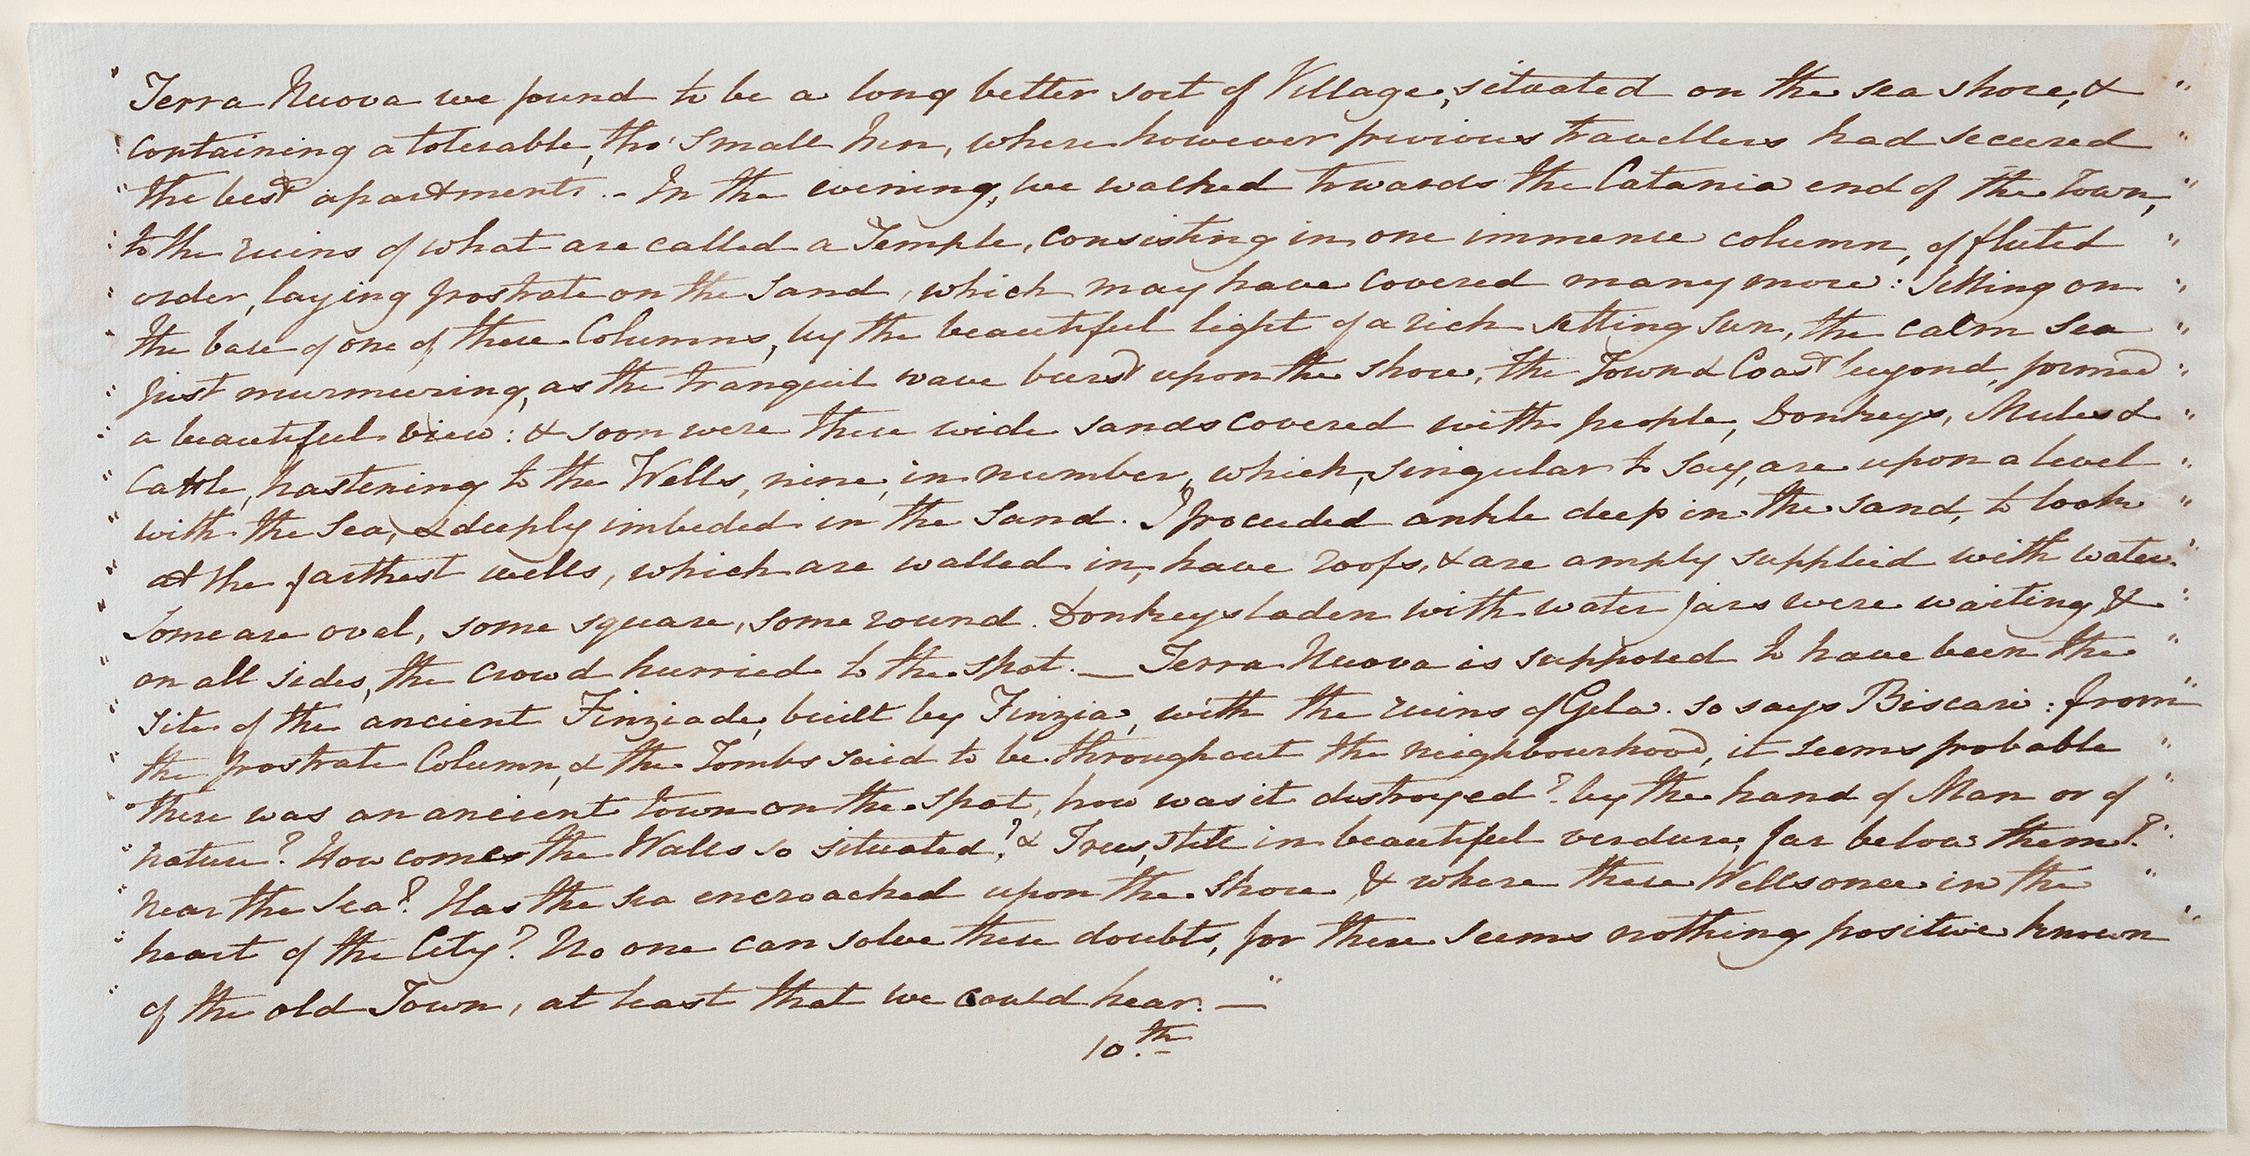 " Terra Nuova we found to be a long better sort of Village, situated on the sea shore, & "
" containing a tolerable, tho' small Inn, where however previous travellers had secured "
" the best apartments. - In the evening, we walked towards the Catania end of the Town, "
" to the ruins of what are called a Temple, consisting in one immense column, of fluted "
" order, laying prostrate on the sand, which may have covered many more: Sitting on "
" the base of one of these Columns, by the beautiful light of a rich setting sun, the calm sea "
" just murmuring, as the tranquil wave burst upon the shore, the Town & Coast beyond, formed "
" a beautiful view: & soon were these wide sands covered with people, Donkeys, Mules & "
" Cattle, hastening to the Wells, nine, in number, which, singular to say, are upon a level "
" with the sea, & deeply imbeded in the sand. I proceeded ankle deep in the sand, to look "
" at the farthest wells, which are walled in, have roofs, & are amply supplied with water. "
" Some are oval, some square, some round. Donkeys laden with water jars were waiting, & "
" on all sides, the crowd hurried to the spot. — Terra Nuova is supposed to have been the "
" site of the ancient Finziade, built by Finzia, with the ruins of Gela. so says Biscari: from "
" the prostrate Column, & the Tombs said to be throughout the neighbourhood, it seems probable "
" there was an ancient town on the spot, how was it destroyed? by the hand of Man or of "
" nature? How comes the Walls so situated? & Trees, still in beautiful verdure, far below them? "
" Near the Sea? Has the sea encroached upon the shore, & where these Wells once in the "
" heart of the City? No one can solve these doubts, for there seems nothing positive known "
" of the old Town, at least that we could hear. — "
10th